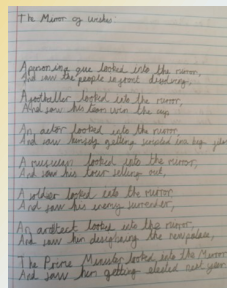 The Mirror of wishes
A person in a que looked into the mirror,
And saw the people in front dissolving.
A footballer looked into the mirror,
And saw his team win the cup
An actor looked into the mirror,
And saw himself getting in a big
A musician looked into the mirror,
And saw his tour selling out,
A soldier looked into the mirror
And saw his enemy surrender,
An architect looked into the mirror,
And saw him designing the new palace,
The Prime Minister looked into the Mirror
And saw him getting elected next year